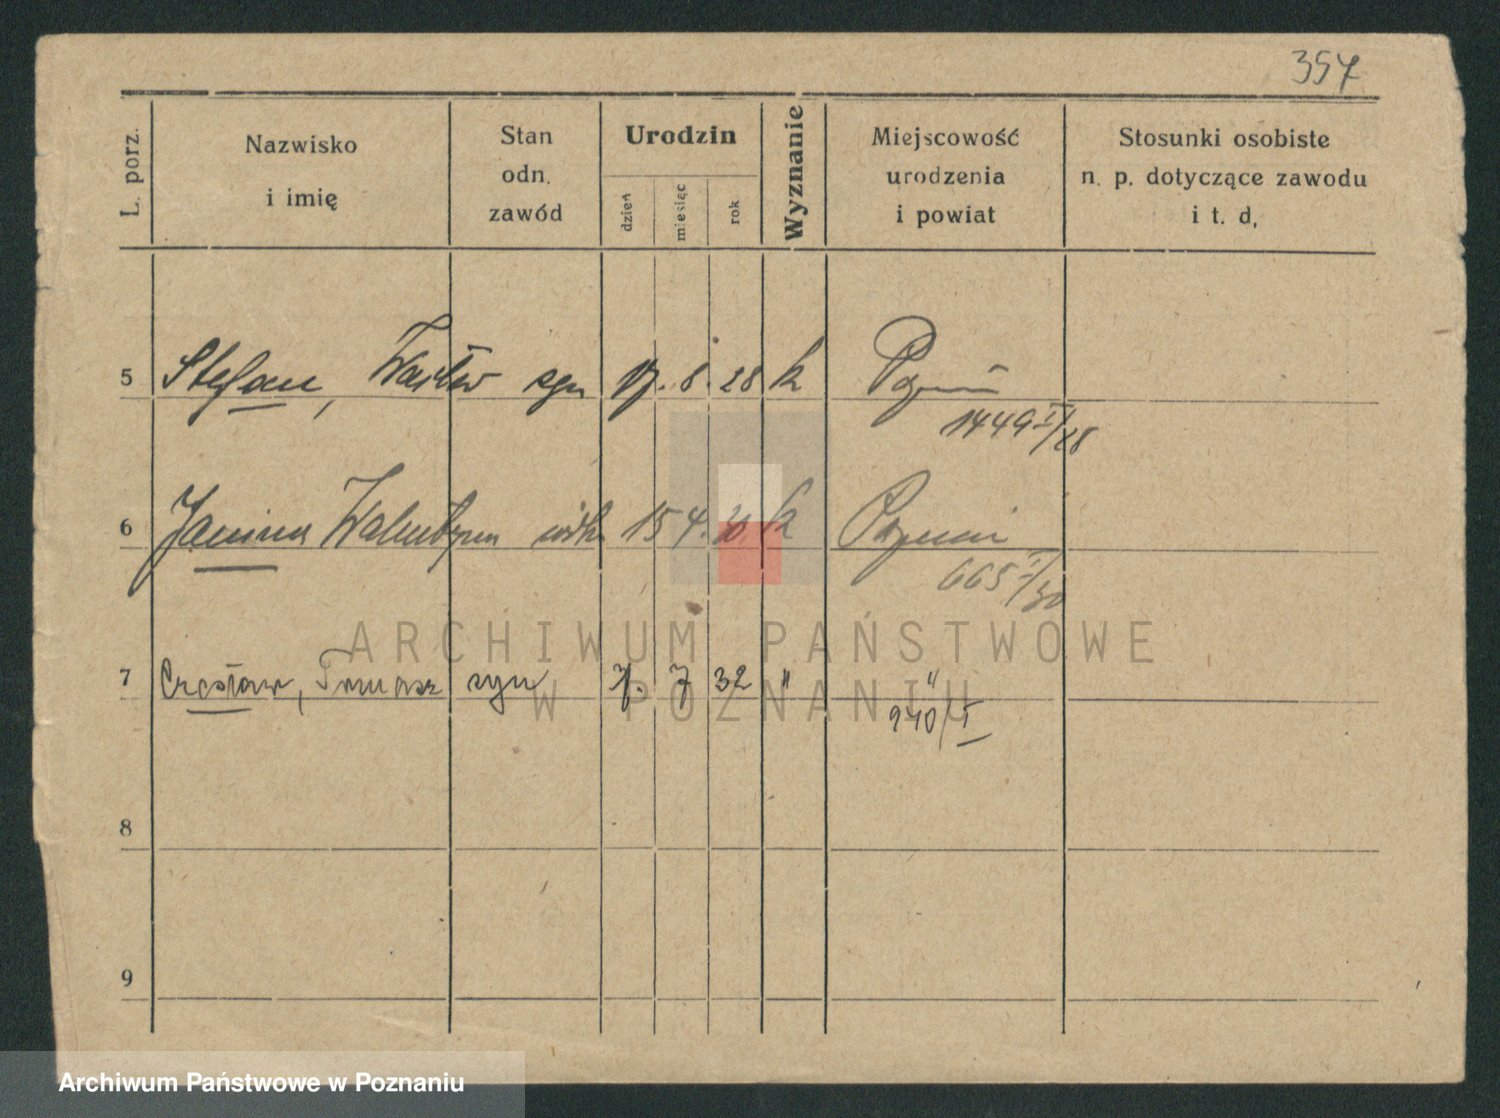 357
L. porz.
Nazwisko
i imię
Stan
odn.
zawód
Urodzin
dzień
miesiąc
rok
Wyznanie
Miejscowość
urodzenia
i powiat
Stosunki osobiste
n. p. dotyczące zawodu
i t. d,
5 Stefan, Wacław syn 17. 8. 28 k Poznań
1449 I/28
6 Janina Walentyna 15 4. 30 k Poznań
665 I/30
7 Czesław, Tomasz syn 7. 7 32 " "
940/I
8
9
ARCHIWUM PAŃSTWOWE
W POZNANIU
Archiwum Państwowe w Poznaniu